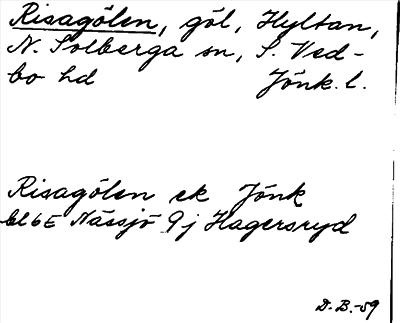 Risagölen, göl, Hyltan,
N. Solberga sn, S. Ved-
bo hd Jönk. l.
Risagölen ek Jönk
bl 6E Nässjö 9j Hagersryd
D. B. -59